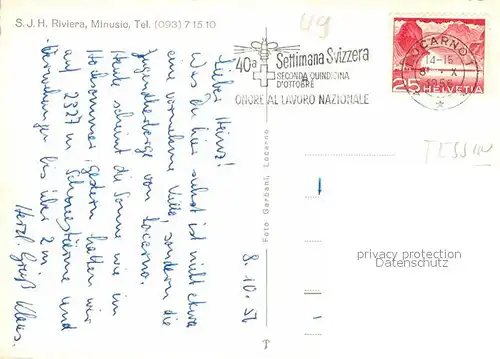 S. J. H. Riviera, Minusio, Tel. (093) 7 15 10
49
40a Settimana Svizzera
SECONDA QUINDICINA
D'OTTOBRE
ONORE AL LAVORO NAZIONALE
LOCARNO 1
14-16
X
25 HELVETIA
TESSIN
Lieber Heinz!
Was Du hier siehst ist nicht etwa
eine vornehme Villa, sondern die
Jugendherberge von Locarno.
Heute scheint die Sonne wie im
Hochsommer, gestern hatten wir
auf 2327 m Schneestürme und
bis über 2 m.
Herzl. Gruß Klaus.
8. 10. 56
Foto Garbani, Locarno
privacy protection
Datenschutz